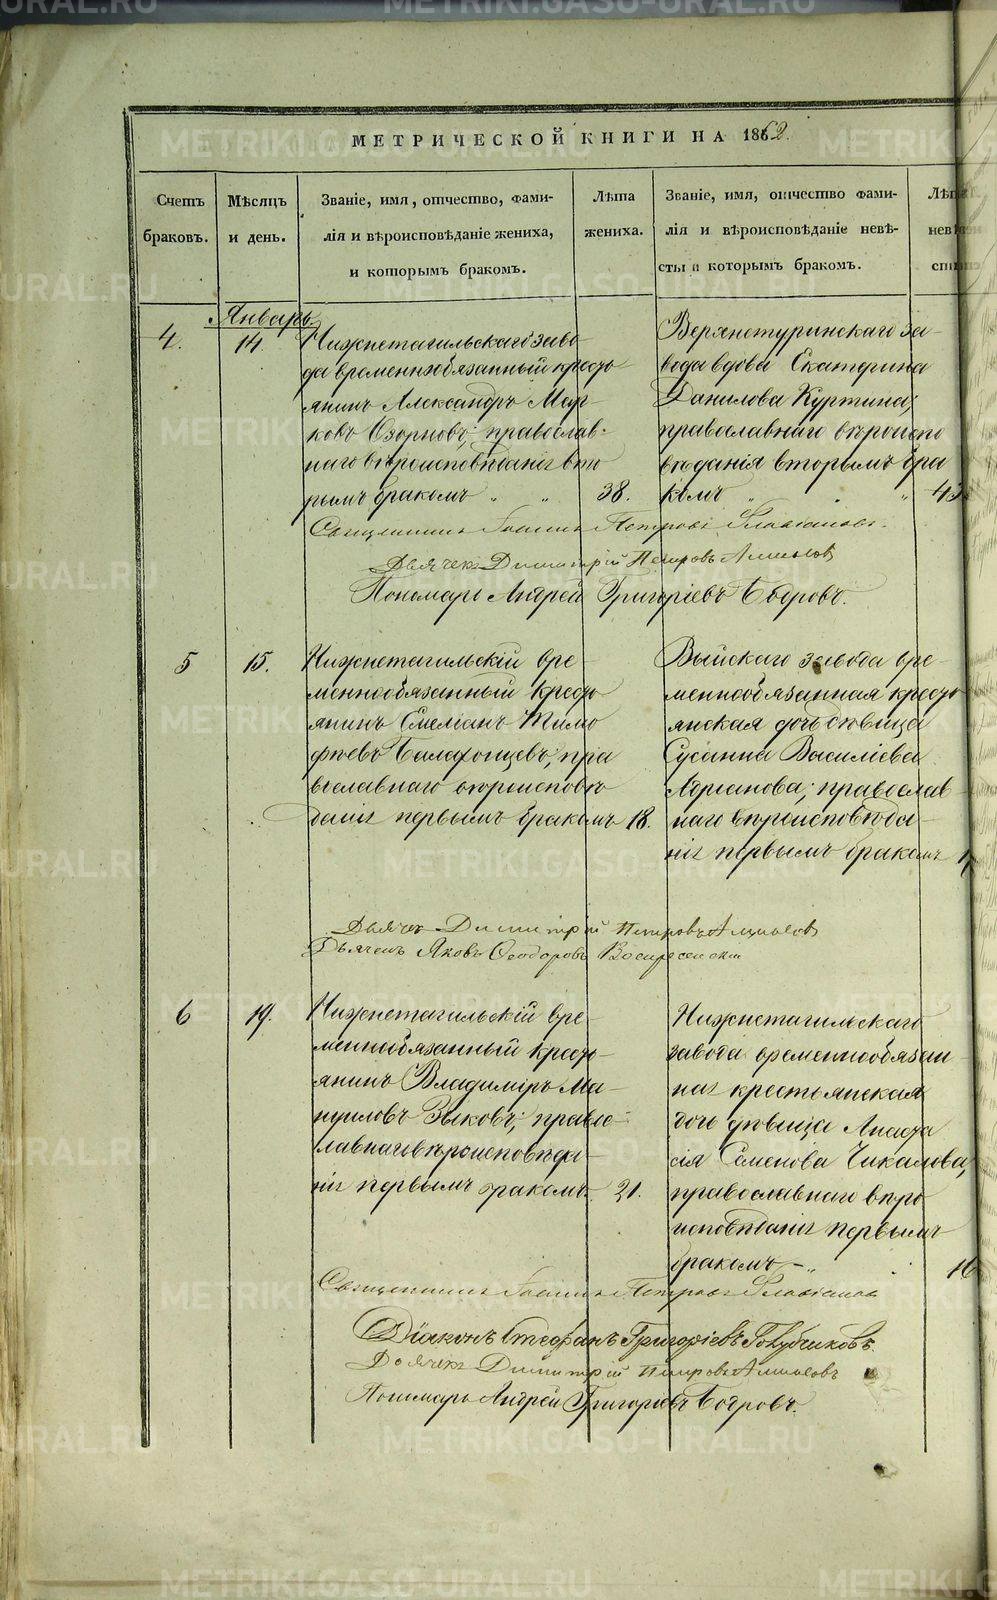 МЕТРИЧЕСКОЙ КНИГИ НА 1862.
Счетъ браковъ.
Мѣсяцъ и день.
Званіе, имя, отчество, фами-
лія и вѣроисповѣданіе жениха,
и которымъ бракомъ.
Лѣта
жениха.
Званіе, имя, отчество фами-
лія и вѣроисповѣданіе невѣ-
сты и которымъ бракомъ.
Январь
4.
14
Нижнетагильскаго заво-
да временнообязанный кресть
янинъ Александръ Мар-
ковъ Озорновъ, православ-
наго вѣроисповѣданія вто
рымъ бракомъ „ „ 38.
Верхнетуринскаго за-
вода вдова Екатерина
Данилова Куртина;
православнаго вѣроиспо
вѣданія вторымъ бра
комъ „ „ 43
Священникъ Іоаннъ Петровъ Славіановъ.
Дьячекъ Димитрій Петровъ
Пономарь Андрей Григоріевъ Бобровъ.
5
15.
Нижнетагильскій вре-
меннообязанный кресть
янинъ Емеліанъ Тимо
фѣевъ пра
вославнаго вѣроисповѣ
данія первымъ бракомъ 18.
Выйскаго завода вре-
меннообязанная кресть
янская дочь дѣвица
Сусанна Василіева
Адріанова; православ
наго вѣроисповѣда-
нія первымъ бракомъ
Дьячекъ Димитрій Петровъ
Дьяченъ Яковъ Ѳеодоровъ Воскресенскій
6
19.
Нижнетагильскій вре-
меннообязанный кресть-
янинъ Владиміръ Ма-
нуиловъ Зыковъ; правос-
лавнаго вѣроисповѣда-
нія первымъ бракомъ. 21.
Нижнетагильскаго
завода временнообязан
ная крестьянская
дочь дѣвица Анаста
сія Семенова Чикалова,
православнаго вѣро
исповѣданія первымъ
бракомъ „ 16
Священникъ Іоаннъ Петровъ Славіановъ
Діаконъ Стефанъ Григоріевъ Голубчиковъ.
Дьячекъ Димитрій Петровъ
Пономарь Андрей Григоріевъ Бобровъ.
METRIKI.GASO-URAL.RU